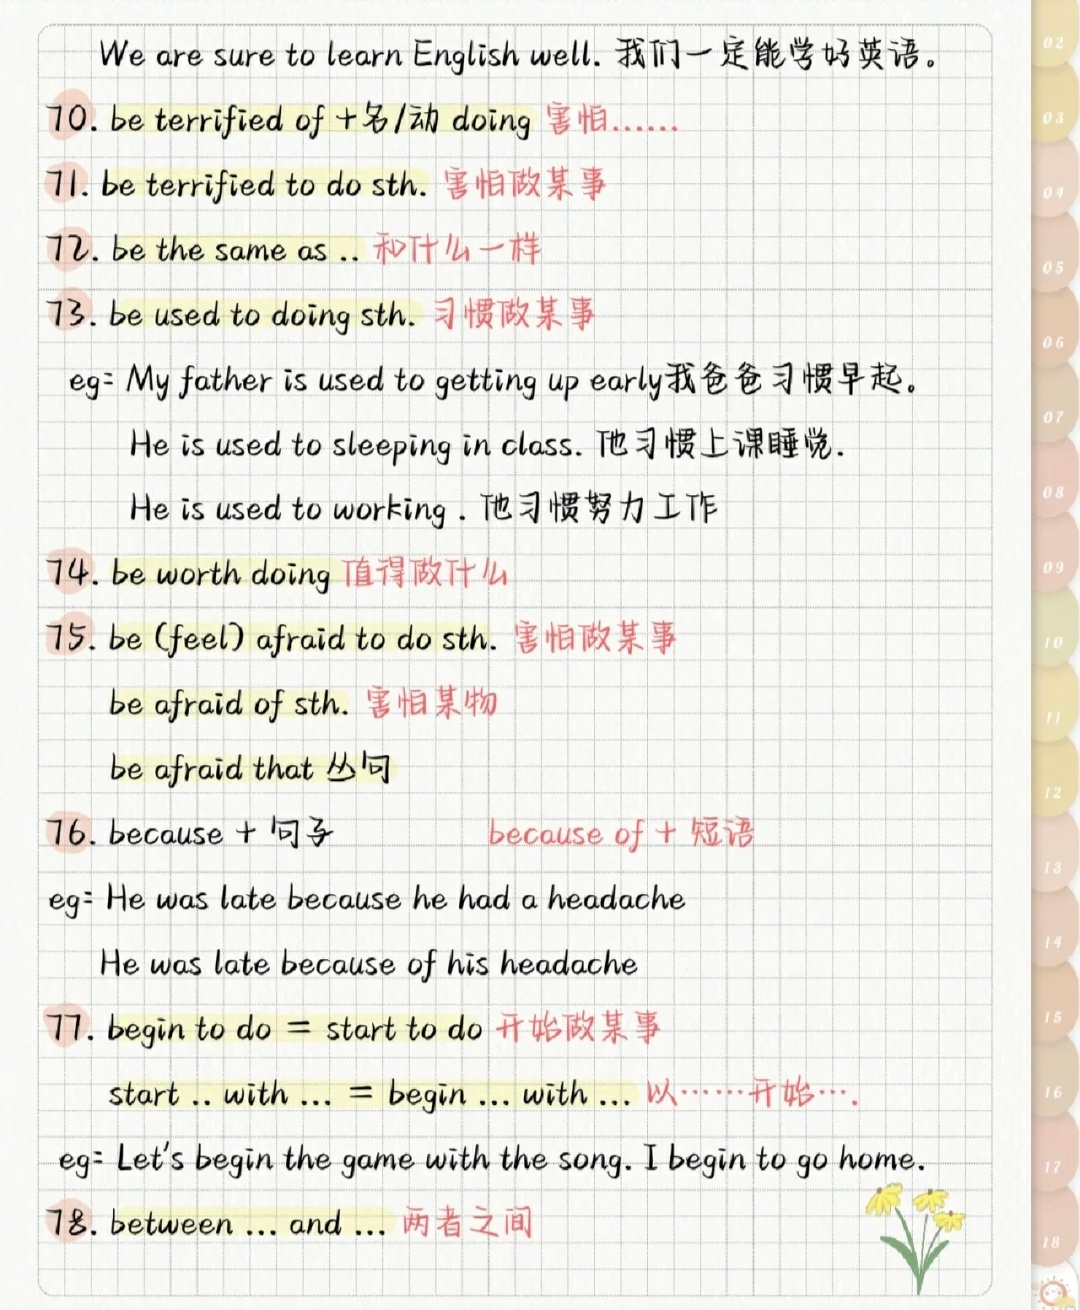 We are sure to learn English well. 我们一定能学好英语。
70. be terrified of +名/动 doing 害怕......
71. be terrified to do sth. 害怕做某事
72. be the same as .. 和什么一样
73. be used to doing sth. 习惯做某事
eg= My father is used to getting up early我爸爸习惯早起。
He is used to sleeping in class. 他习惯上课睡觉.
He is used to working . 他习惯努力工作
74. be worth doing 值得做什么
75. be (feel) afraid to do sth. 害怕做某事
be afraid of sth. 害怕某物
be afraid that 丛句
76. because + 句子 because of + 短语
eg= He was late because he had a headache
He was late because of his headache
77. begin to do = start to do 开始做某事
start .. with ... = begin ... with ... 以……开始….
eg= Let's begin the game with the song. I begin to go home.
78. between ... and ... 两者之间
02
03
04
05
06
07
08
09
10
11
12
13
14
15
16
17
18